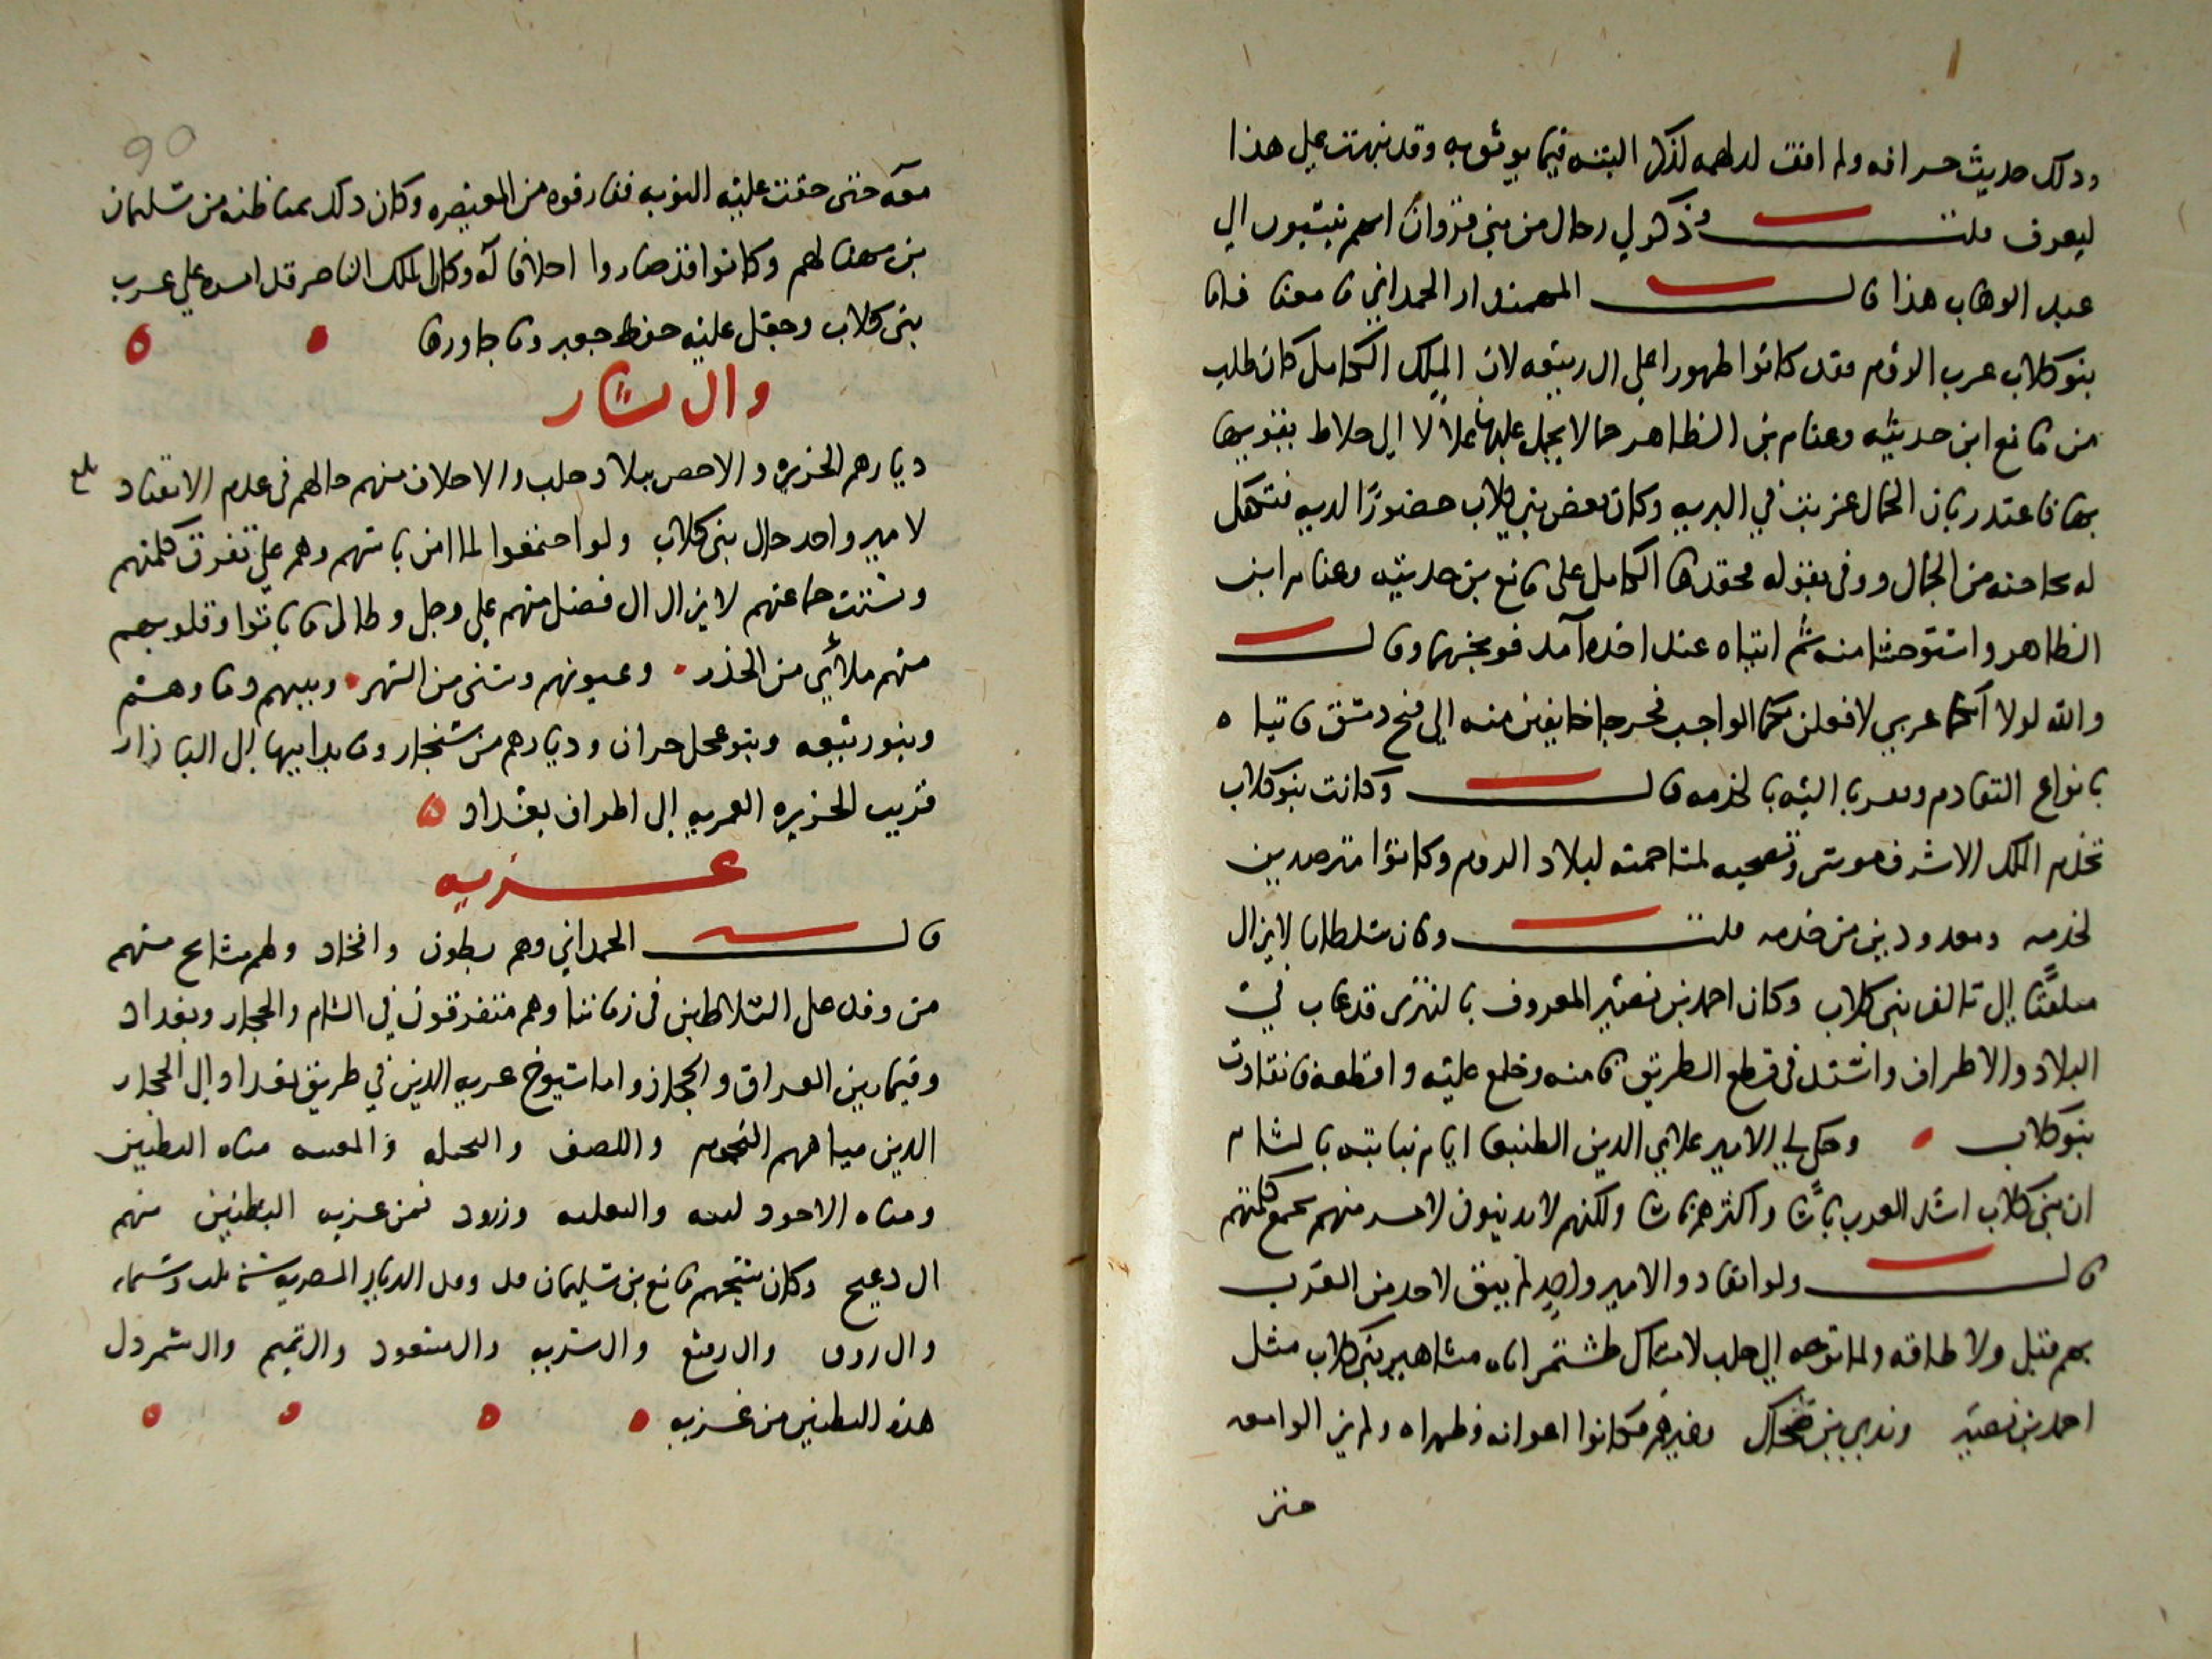 وذلك حديث خرافة ولم اقف لهم لذكر البتة فيما يوثق به وقد نبهت على هذا
ليعرف قلت وذكر لي رجال من بني مروان انهم ينتسبون الى
عبد الوهاب هذا قال المهمندار الحمداني ما معناه فاما
بنو كلاب عرب الروم فقد كانوا ظهورا على ال ربيعه لان الملك الكامل كان طلب
من مانع ابن حديثه وغنام بن الظاهر جمالا يحمل عليها غلالا الى خلاط يقويها
بها فاعتذر بان الجمال عزبت في البريه وكان بعض بني كلاب حضورا لديه فتكفل
له بحاجته من الجمال ووفى بقوله فحقدها الكامل على مانع بن حديثه وغنام ابن
الظاهر واستوحشا منه ثم اتياه عند اخذه آمد فوبخهما وقال
والله لولا انكما عربي لافعلن بكما الواجب فخرجا خايفين منه الى فتح دمشق فاتياه
بانواع التقادم وتقربا اليه بالخدمه قال وكانت بنو كلاب
تخدم الملك الاشرف موسى وتصحبه لمتاخمته لبلاد الروم وكانوا مترصدين
لخدمه ومعدودين من خدمه قلت وكان سلطاننا لا يزال
ملتفتا الى تالف بني كلاب وكان احمد بن نصير المعروف بالتتري قد عاث في
البلاد والاطراف واشتد في قطع الطريق فامنه وخلع عليه واقطعه فانقادت
بنو كلاب وحكى لي الامير علاي الدين الطنبغا ايام نيابته بالشام
ان بني كلاب اشد العرب باسا واكثرهم ناسا ولكنهم لا يدينون لامير منهم يجمع كلمتهم
قال ولو انقادوا لامير واحد لم يبق لاحد من العرب
بهم قبل ولا طاقه ولما توجه الى حلب لامساك طشتمر اتاه مشاهير بني كلاب مثل
احمد بن نصير وندى بن ضحاك وغيرهم فكانوا اعوانه وظهراه ولم يزالوا معه
حتى
معه حتى حقت عليه النوبه ففارقوه من المعيصره وكان ذلك بمباطنه من سليمان
بن مهنا لهم وكانوا قد صاروا احلافا له وكان الملك الناصر قد امره على عرب
بني كلاب وجعل عليه حفظ جعبر وما جاورها
وال بشار
ديارهم الجزيره والاحص ببلاد حلب والاحلاف منهم حالهم في عدم الانقياد
بلغ
لامير واحد حال بني كلاب ولو اجتمعوا لما امن باسهم وهم على تفرق كلمتهم
وتشتت جماعتهم لا يزال ال فضل منهم على وجل وطالما باتوا وقلوبهم
منهم ملاى من الحذر وعيونهم وسنى من السهر وبينهم دما وهم
وبنو ربيعه وبنو عجل جيران وديارهم من سنجار وما يدانيها الى البازار
قريب الجزيره العمريه الى اطراف بغداد
عربيه
قال الحمداني وهم بطون وافخاذ ولهم مشايخ منهم
من وفد على السلاطين في زماننا وهم متفرقون في الشام والحجاز وبغداد
وفيما بين العراق والحجاز واما شيوخ غزيه الذين في طريق بغداد الى الحجاز
الذين مياههم اليحموم واللصف والنخيله والمغيثه مياه البطنين
ومياه الاجود لينه والثعلبيه وزرود فمن غزيه البطنين منهم
ال دعيج وكان شيخهم مانع بن سليمان قد وفد الديار المصريه سنه ثلث وستمايه
وال روق وال رفيع وال سريه وال مسعود وال تميم وال شمردل
هذه البطنين من غزيه